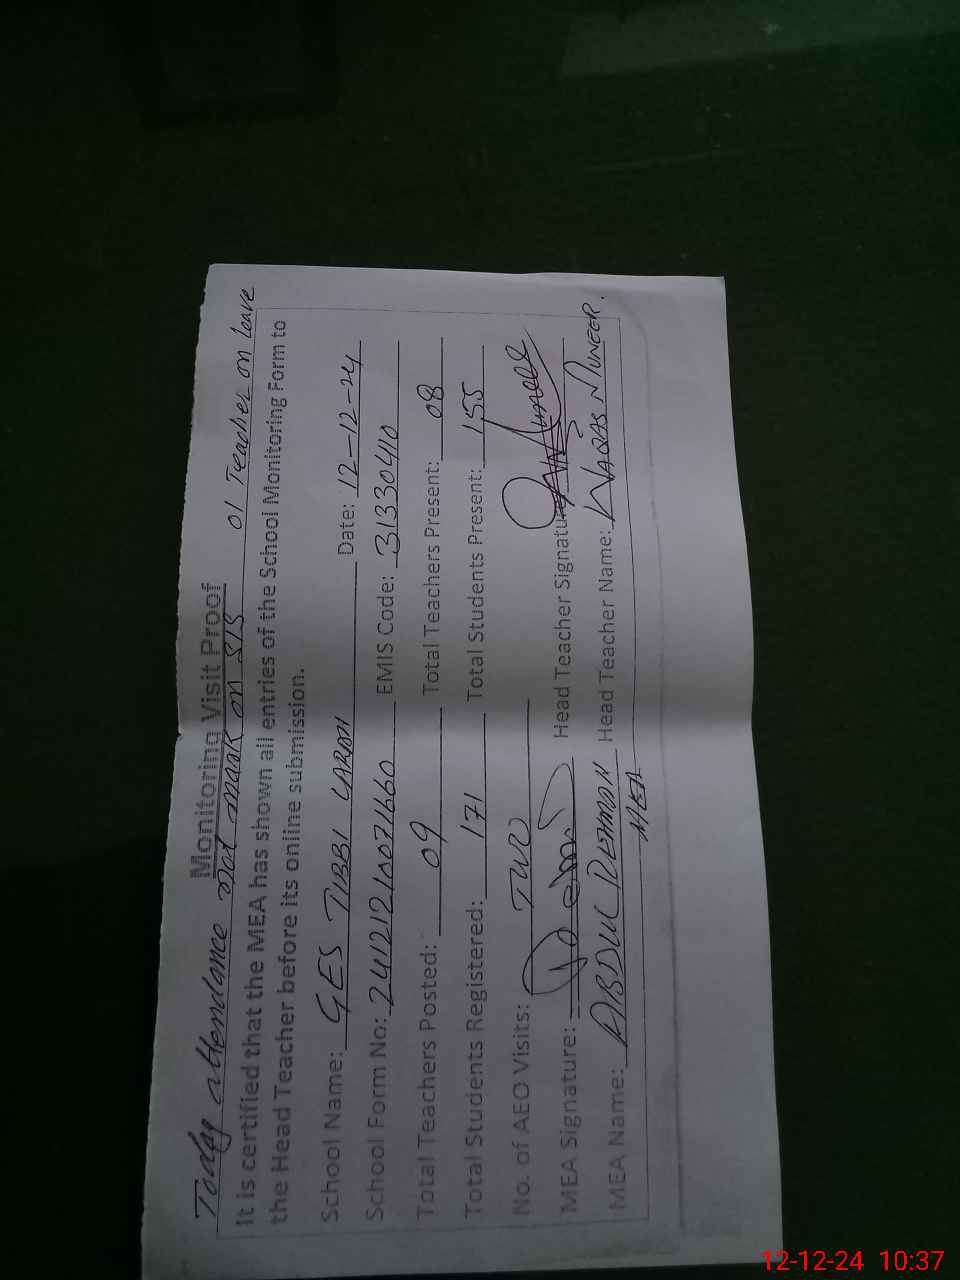 Monitoring Visit Proof
Today attendance not mark on SIS 01 Teacher on leave
It is certified that the MEA has shown all entries of the School Monitoring Form to
the Head Teacher before its online submission.
School Name: GES TIBBI LARAN Date: 12-12-24
School Form No: 24121210071660 EMIS Code: 31330410
Total Teachers Posted: 09 Total Teachers Present: 08
Total Students Registered: 171 Total Students Present: 155
No. of AEO Visits: TWO
MEA Signature: Head Teacher Signature
MEA Name: ABDUL REHMAN Head Teacher Name: WAQAS MUNEER.
MEA
12-12-24 10:37